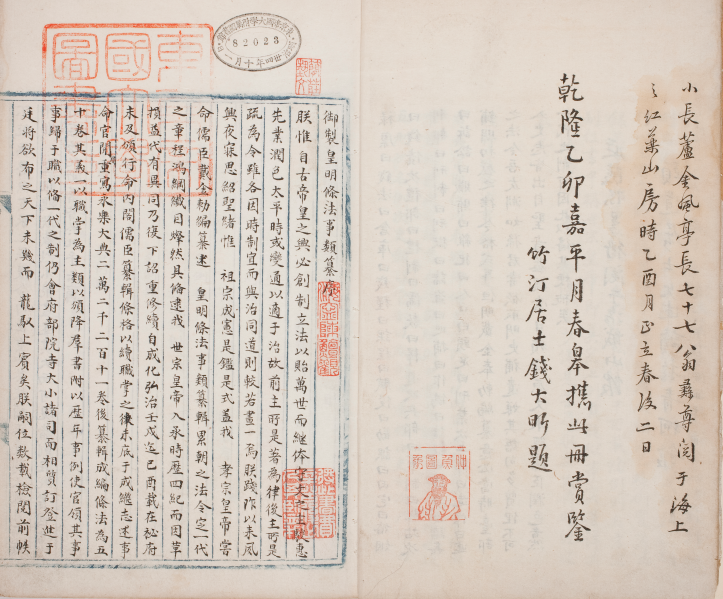 小長蘆金風亭長七十七八翁彝尊閱于海上
之紅葉山房時乙酉月正立春後二日
乾隆乙卯嘉平月春皋攜此冊賞鑒
竹汀居士錢大昕題
82023
御製皇明條法事類纂序
朕惟自古帝皇之興必創制立法以貽萬世而继体守文之主惠
先業潤色太平時或變通以適于治故前主所是著為律後主所是
疏為令雖各因時制宜而與治同道則較若畫一焉朕踐阼以来夙
興夜寐思紹聖緒惟 祖宗成憲是鑑是式蓋我 孝宗皇帝嘗
命儒臣戴金勑編纂逮 皇明條法事類纂輯累朝之法令定一代
之章程鴻綱纖目燦然具脩逮我 世宗皇帝入承時歷四紀而因革
損益代有異同乃復下詔重修續自成化弘治壬戌迄己酉載在秘府
未及頒行命內閣儒臣纂輯條格以續職掌之後未底于成繼志述事
命官閣重寫永樂大典二萬二千二百十一卷後纂輯成編條法為五
十卷其義一以職掌為主類以頒降羣書附以歷年事例使官領其事
事歸于職以脩一代之制仍會府部院寺大小諸司而相質訂登進于
廷將欲布之天下未幾而 龍馭上賓矣朕嗣位數載檢閱前帙